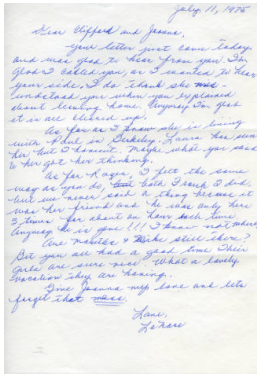 July 11, 1975
Dear Clifford and Joanna,
Your letter just came today
and was glad to hear from you. I'm
glad I called you, as I wanted to hear
your side. I do think she mis-
understood you when you explained
about leaving home. Anyway I'm glad
it is all cleared up.
As far as I know she is living
with Paul in Berkeley. Laura has seen
her but I haven't. Maybe what you said
to her got her thinking.
As for I felt the same
way as you do, both & I did,
but we never said a thing because it
was her friend and he was only here
3 times for about an hour each time
Anyway he is gone!!! I know not where
Are & Mike still there?
Bet you all had a good time. Their
girls are sure nice. What a lovely
vacation they are having.
Give Joanna my love and lets
forget that mess.
Love,